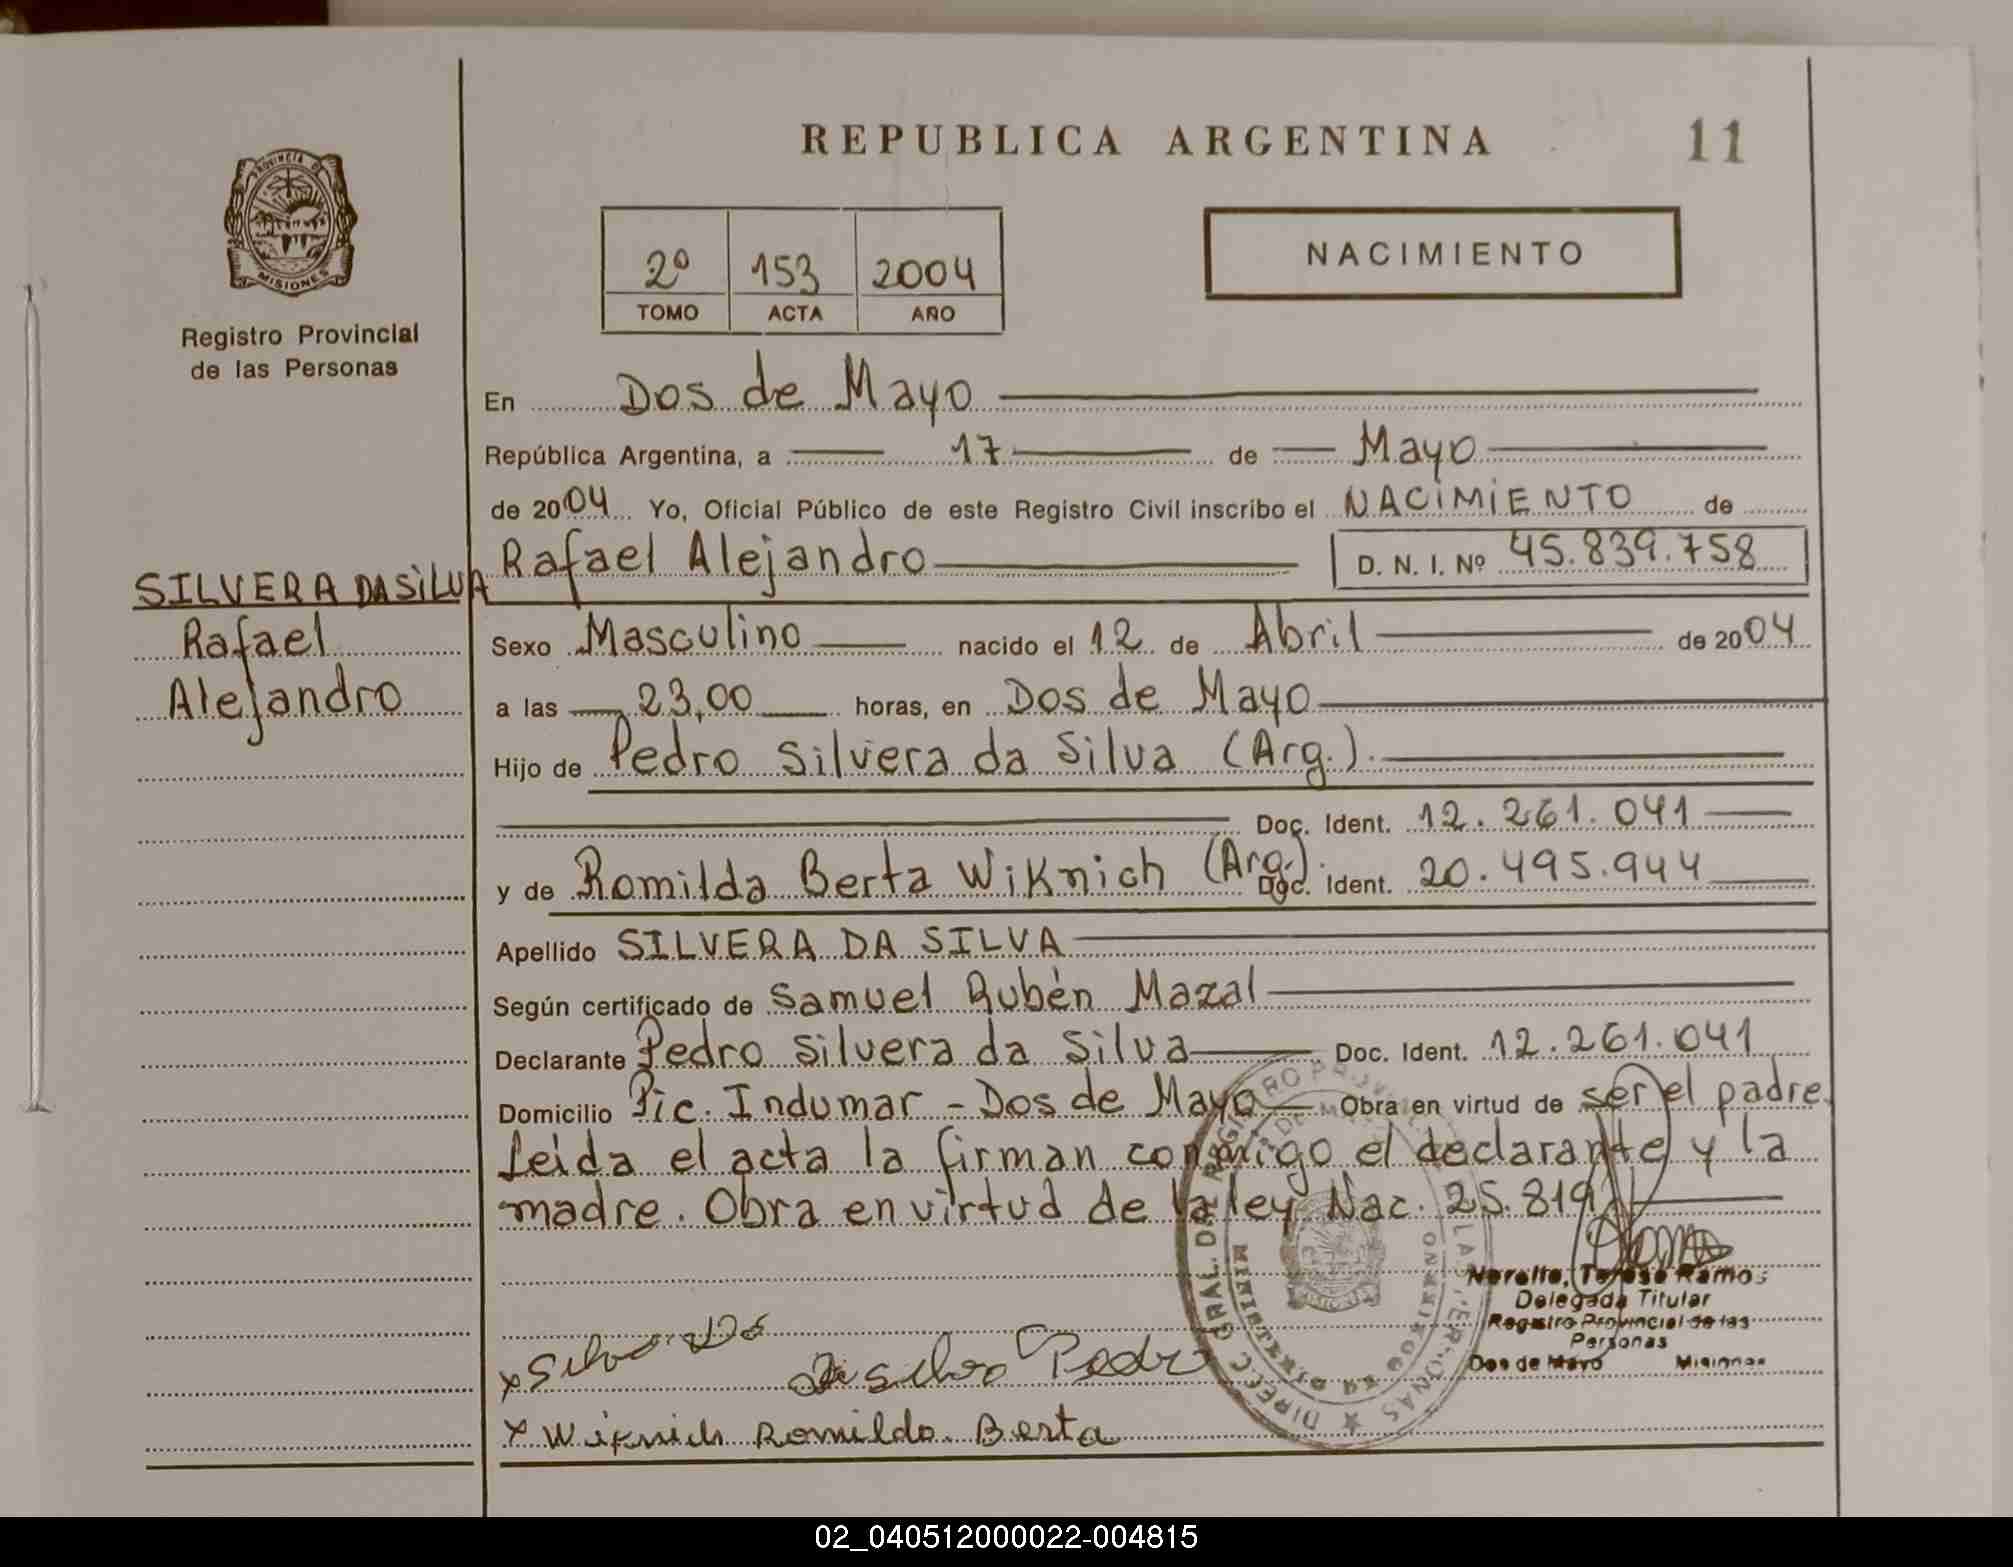 REPUBLICA ARGENTINA
11
PROVINCIA DE
MISIONES
Registro Provincial
de las Personas
2º 153 2004
TOMO ACTA AÑO
NACIMIENTO
En Dos de Mayo
República Argentina, a 17 de Mayo
de 2004 Yo, Oficial Público de este Registro Civil inscribo el NACIMIENTO de
Rafael Alejandro D. N. I. Nº 45.839.758
SILVERA DA SILVA
Rafael
Alejandro
Sexo Masculino nacido el 12 de Abril de 2004
a las 23,00 horas, en Dos de Mayo
Hijo de Pedro Silvera da Silva (Arg.).
Doc. Ident. 12.261.041
y de Romilda Berta Wiknich (Arg.). Doc. Ident. 20.495.944
Apellido SILVERA DA SILVA
Según certificado de Samuel Rubén Mazal
Declarante Pedro Silvera da Silva Doc. Ident. 12.261.041
Domicilio Pic. Indumar - Dos de Mayo Obra en virtud de ser el padre.
Leida el acta la firman conmigo el declarante y la
madre. Obra en virtud de la ley Nac. 25.819.
Teresa Ramos
Delegada Titular
Registro Provincial de las
Personas
Dos de Mayo Misiones
x Silva da silva Pedro
x Wiknich Romilda Berta
02_040512000022-004815